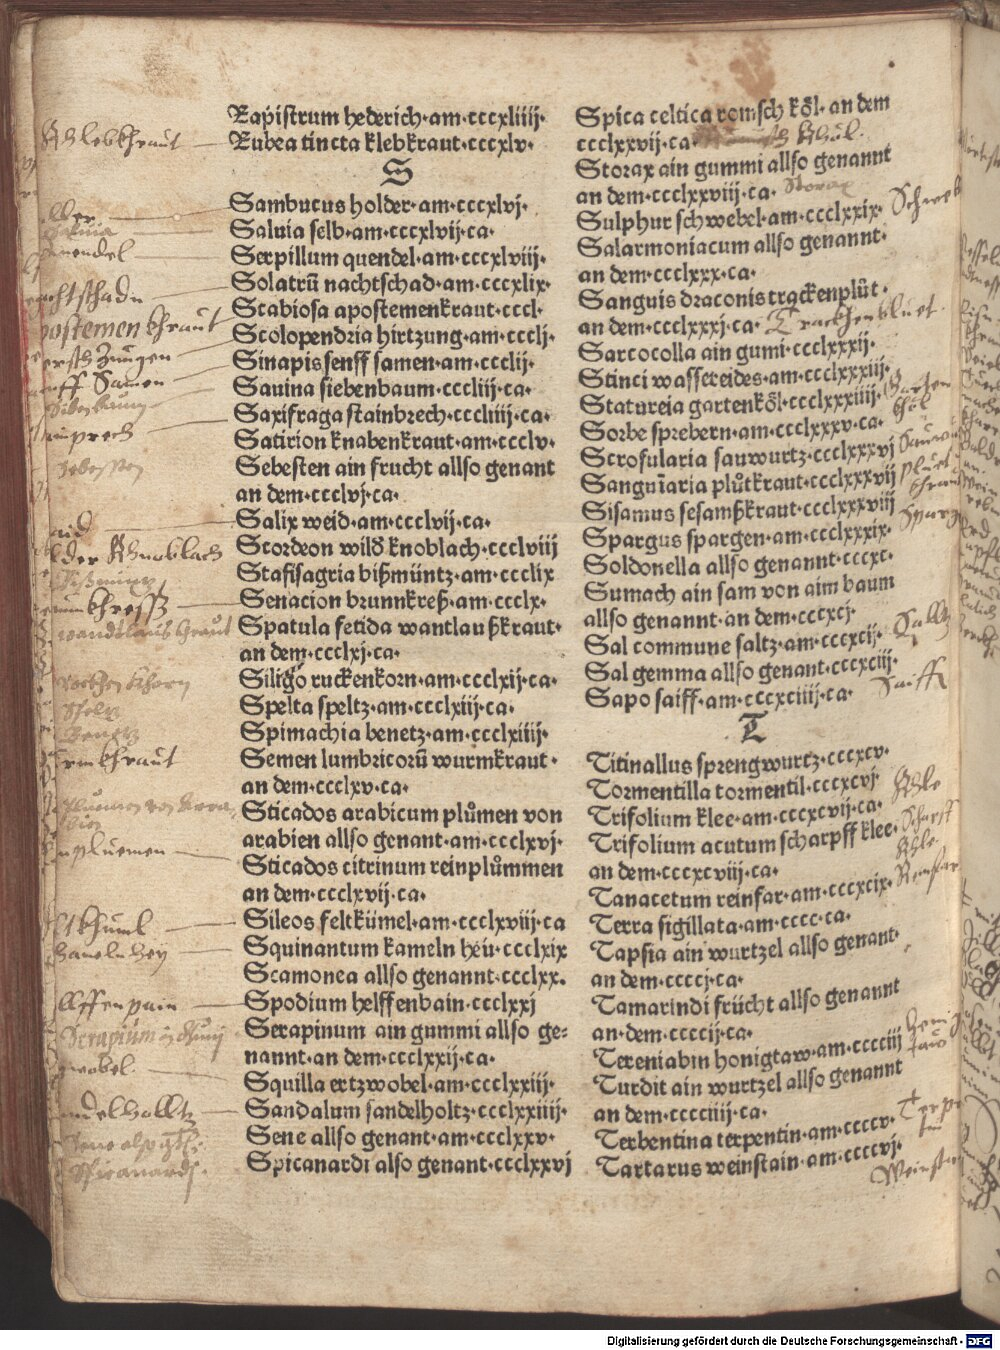 Rapistrum hederich·am·cccxliiij·
Rubea tincta klebkraut·cccxlv·
S
Sambucus holder·am·cccxlvj·
Saluia selb·am·cccxlvij·ca·
Serpillum quendel·am·cccxlviij·
Solatrū nachtschad·am·cccxlix·
Scabiosa apostemenkraut·cccl·
Scolopendria hirtzung·am·cccli·
Sinapis senff samen·am·ccclij·
Sauina siebenbaum·cccliij·ca·
Saxifraga stainbrech·cccliiij·ca·
Satirion knabenkraut·am·ccclv·
Sebesten ain frucht allso genant
an dem·ccclvj·ca·
Salix weid·am·ccclvij·ca·
Scordeon wild knoblach·ccclviij
Stafisagria bißmüntz·am·ccclix
Senacion brunnkreß·am·ccclx·
Spatula fetida wantlaußkraut·
an dem·ccclxj·ca·
Siligo ruckenkorn·am·ccclxij·ca·
Spelta speltz·am·ccclxiij·ca·
Spimachia benetz·am·ccclxiiij·
Semen lumbricorū wurmkraut·
an dem·ccclxv·ca·
Sticados arabicum plůmen von
arabien allso genant·am·ccclxvj·
Sticados citrinum reinplůmmen
an dem·ccclxvij·ca·
Sileos feltkümel·am·ccclxviij·ca
Squinantum kameln heü·ccclxix
Scamonea allso genannt·ccclxx·
Spodium helffenbain·ccclxxj
Serapinum ain gummi allso ge=
nannt·an dem·ccclxxij·ca·
Squilla ertzwobel·am·ccclxxiij·
Sandalum sandelholtz·ccclxxiiij·
Sene allso genant·am·ccclxxv·
Spicanardi also genant·ccclxxvj
Spica celtica romsch köl·an dem
ccclxxvij·ca·
Storax ain gummi allso genannt
an dem·ccclxxviij·ca· Storax
Sulphur schwebel·am·ccclxxix·
Salarmoniacum allso genannt·
an dem·ccclxxx·ca·
Sanguis draconis trackenplůt·
an dem·ccclxxxj·ca· Trackhenbluet
Sarcocolla ain gumi·ccclxxxij·
Stinci wassereides·am·ccclxxxiij·
Statureia gartenköl·ccclxxxiiij·
Sorbe sprebern·am·ccclxxxv·ca·
Scrofularia sauwurtz·ccclxxxvj
Sanguīaria plůtkraut·ccclxxxvij
Sisamus sesamßkraut·ccclxxxviij
Spargus spargen·am·ccclxxxix·
Soldonella allso genannt·cccxc·
Sumach ain sam von aim baum
allso genannt·an dem·cccxcj·
Sal commune saltz·am·cccxcij·
Sal gemma allso genant·cccxciij·
Sapo saiff·am·cccxciiij·ca·
T
Titinallus sprengwurtz·cccxcv·
Tormentilla tormentil·cccxcvj·
Trifolium klee·am·cccxcvij·ca·
Trifolium acutum scharpff klee·
an dem·cccxcviij·ca·
Tanacetum reinfar·am·cccxcix·
Terra sigillata·am·cccc·ca·
Tapsia ain wurtzel allso genant·
an dem·ccccj·ca·
Tamarindi frücht allso genannt
an·dem·ccccij·ca·
Tereniabin honigtaw·am·cccciij
Turdit ain wurtzel allso genannt
an dem·cccciiij·ca·
Terbentina terpentin·am·ccccv·
Tartarus weinstain·am·ccccvj·
Khlebkhraut
postemen khraut
Samen
khraut
Saltz
Saiff
Digitalisierung gefördert durch die Deutsche Forschungsgemeinschaft - DFG